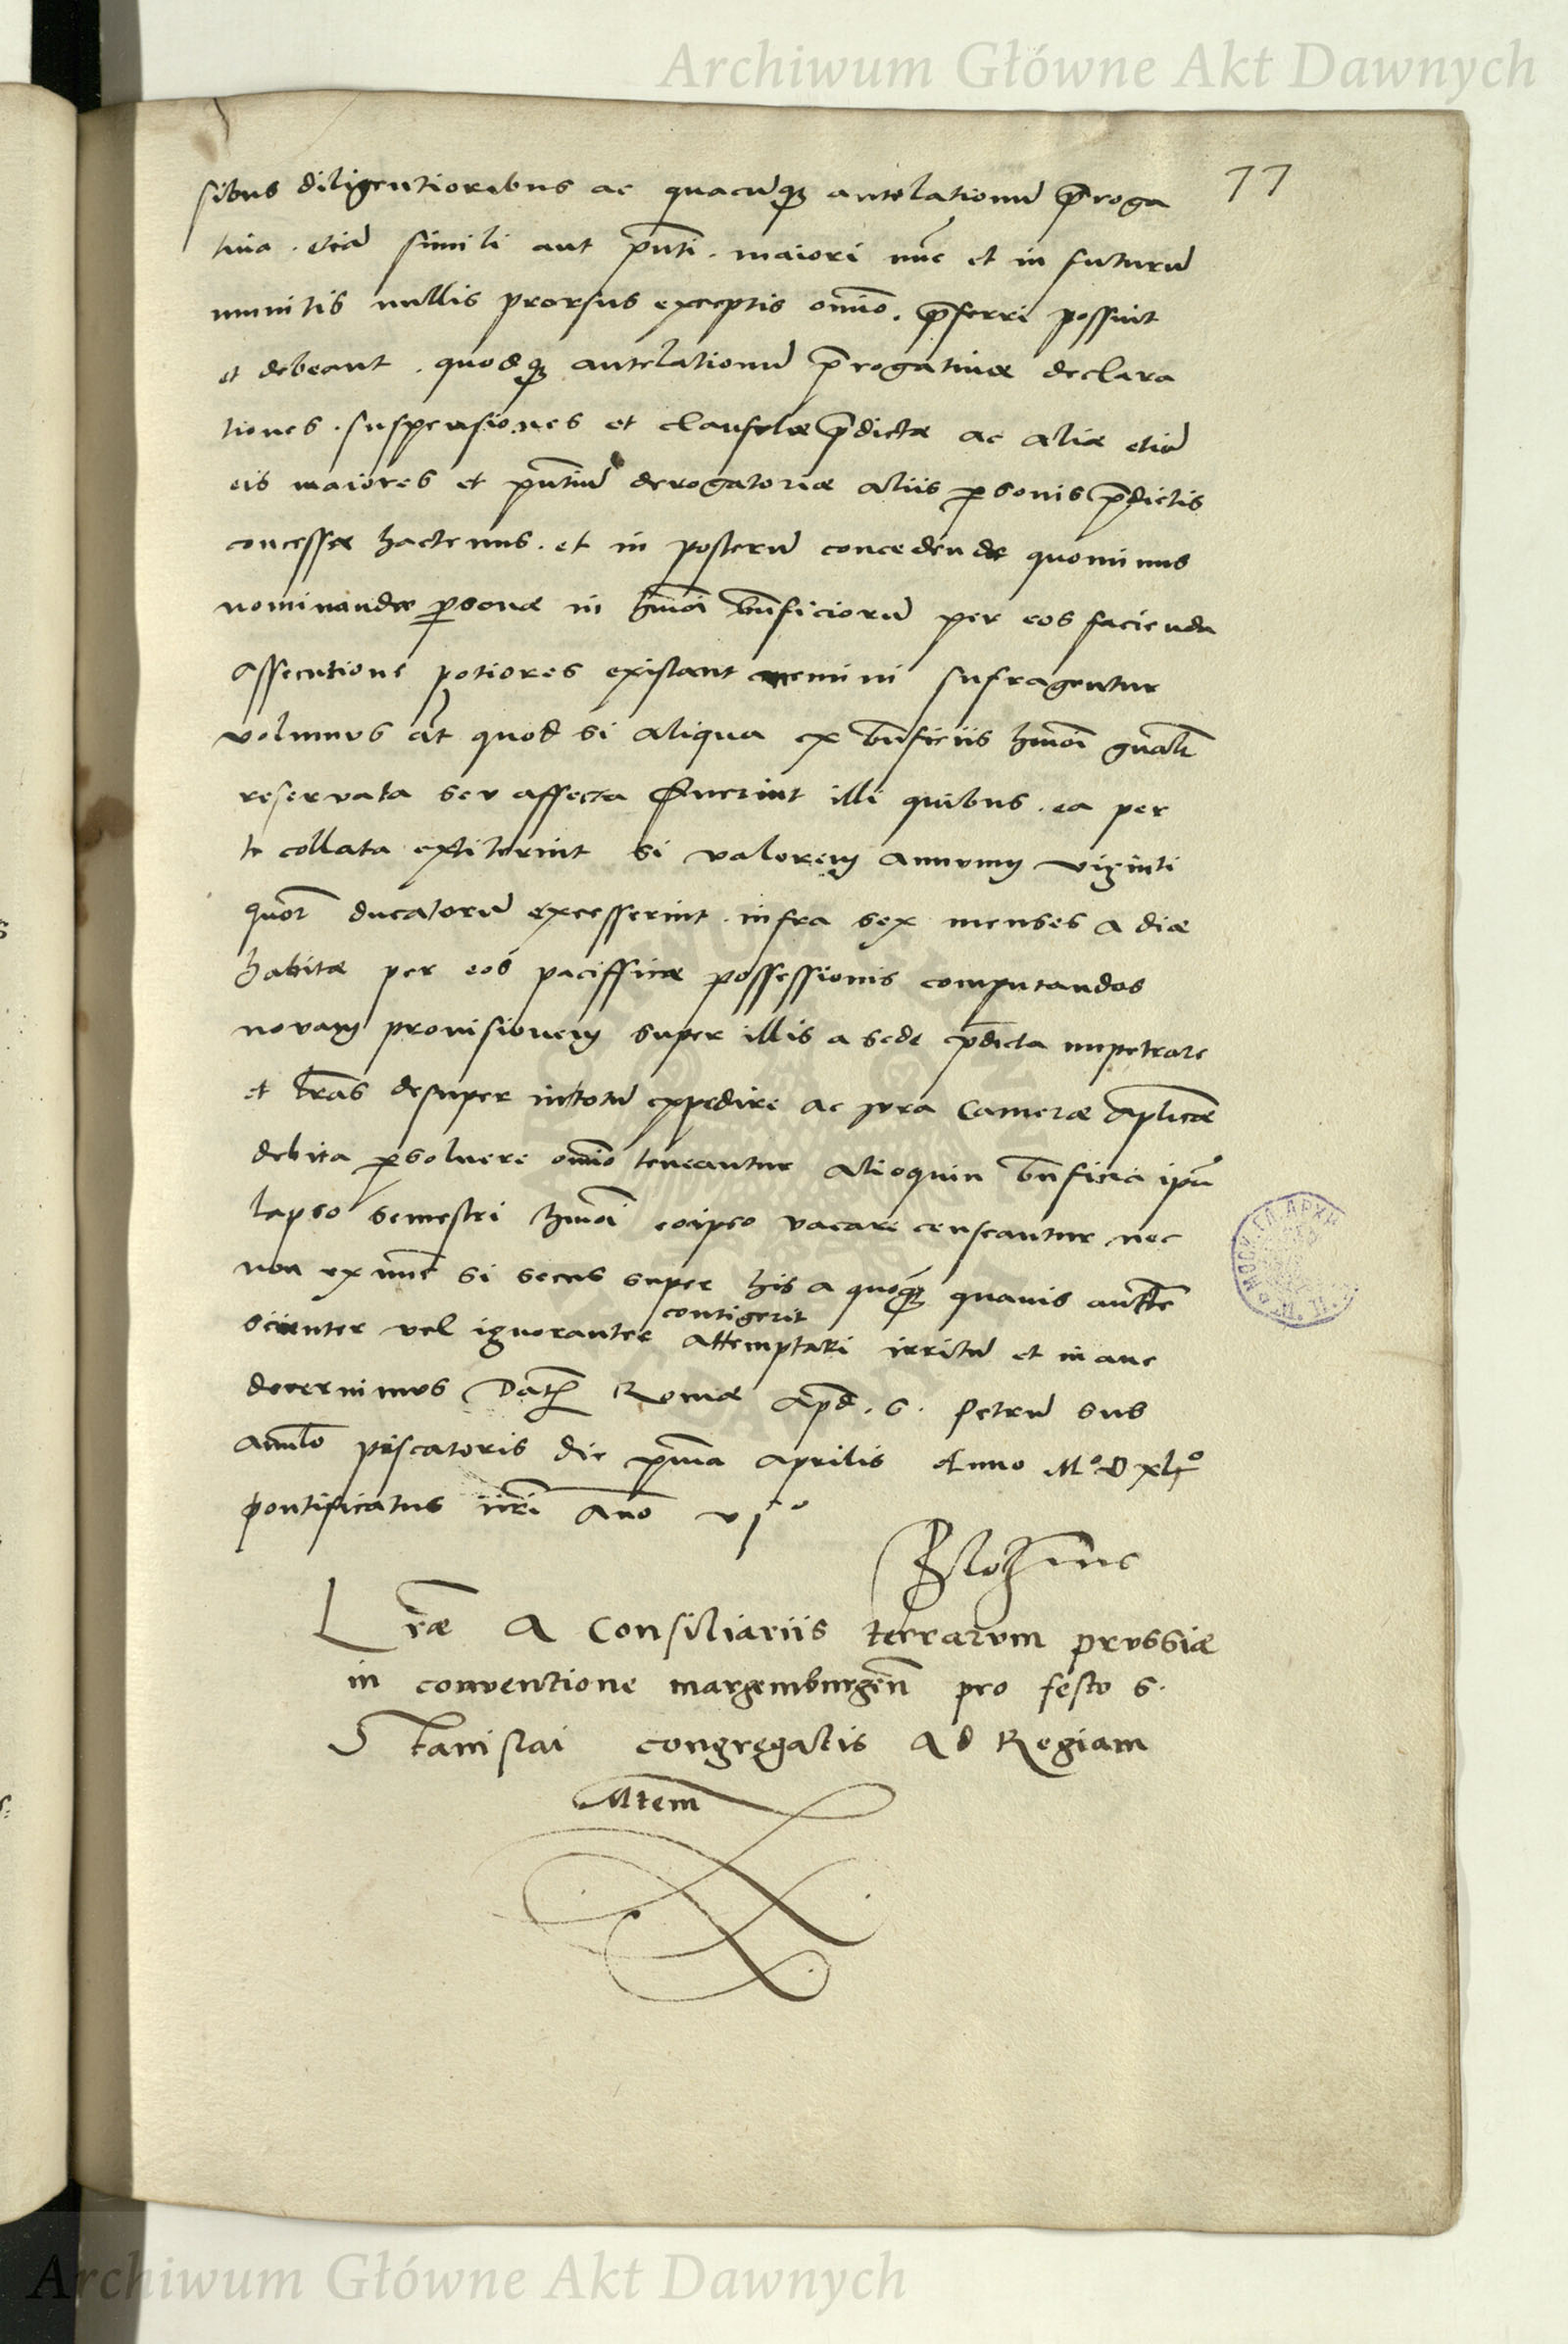 Archiwum Główne Akt Dawnych
77
sibus diligentioribus ac quacūq antelationū p̄roga
tiva . etiā simili aut pn̄ti . maiori nūc et in futurū
munitis nullis prorsus exceptis om̄io . p̄ferri possint
et debeant . quodq antelationū p̄rogativæ declara
tiones . suspensiones et clausulæ p̄dictæ ac aliæ etiā
eis maiores et pn̄tiū derogatoriæ aliis p̱sonis p̄dictis
concessæ hactenus . et in posterū concedendæ quominus
nominandæ p̱sonæ in hm̄oi bn̄ficiorū per eos facienda
assecutione potiores existant nemini sufragentur
volumus āt quod si aliqua ex bn̄ficiis hm̄oi gn̄alr
reservata seu affecta fuerint illi quibus . ea per
te collata extiterint si valorem annuum viginti
quōr ducatorū excesserint . infra sex menses a die
habitæ per eos pacifficæ possessionis computandos
novam provisionem super illis a sede p̄dicta impetrare
et lr̄as desuper in totū expedire ac jura Cameræ ap̄licæ
debita p̱soluere om̄io teneantur alioquin bn̄ficia ip̄a
lapso semestri hm̄oi eoipso vacare censeantur nec
non ex nūc si secus super his a quoq quavis auc̄te
scienter vel ignoranter contigerit attemptari irritū et inane
decernimus Dat̄ Romæ ap̄d . S . Petrū sus
annulo piscatoris die p̄ma aprilis Anno M° D xlj°
pontificatus nr̄i Āno vj°
Blosius
Lr̄æ A Consiliariis terrarum prussiæ
in conventione margemburgen̄ pro festo S.
Stanislai congregatis Ad Regiam
Mtem
Archiwum Główne Akt Dawnych